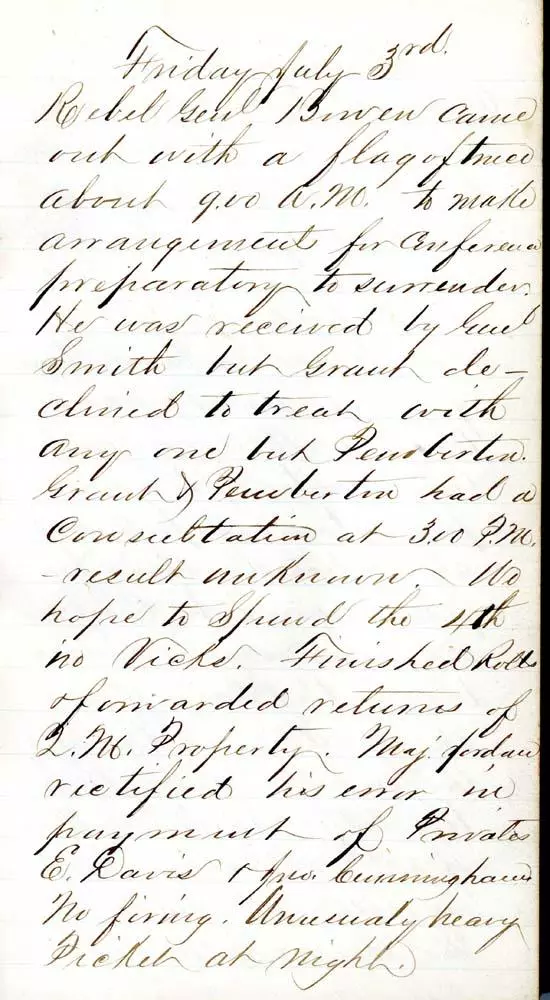 Friday July 3rd.
Rebel Genl Bowen came
out with a flag of truce
about 9.00 A.M. to make
arrangements for Conference
preparatory to surrender.
He was received by Genl
Smith but Grant de-
clined to treat with
any one but Pemberton.
Grant & Pemberton had a
Consultation at 3.00 P.M.
- result unknown. We
hope to Spend the 4th
in Vicks. Finished Rolls
& forwarded returns of
Q.M. Property. Maj. Jordan
rectified his error in
payment of Privates
E. Davis & Jno. Cunningham
No firing. Unusualy heavy
Picket at night.